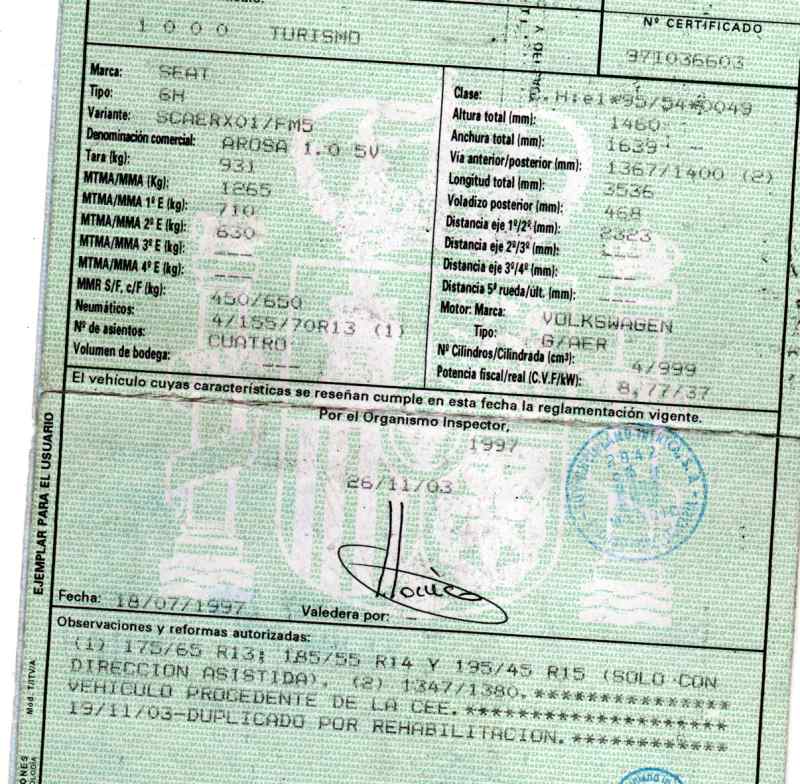 1000 TURISMO
Nº CERTIFICADO
97I036603
Marca: SEAT
Tipo: 6H
Variante: SCAERX01/FM5
Denominación comercial: AROSA 1.0 5V
Tara (kg): 931
MTMA/MMA (Kg): 1265
MTMA/MMA 1º E (kg): 710
MTMA/MMA 2º E (kg): 630
MTMA/MMA 3º E (kg): ---
MTMA/MMA 4º E (kg): ---
MMR S/F, c/F (kg): 450/650
Neumáticos: 4/155/70R13 (1)
Nº de asientos: CUATRO
Volumen de bodega: ---
Clase: .H:e1*95/54*0049
Altura total (mm): 1460
Anchura total (mm): 1639 -
Vía anterior/posterior (mm): 1367/1400 (2)
Longitud total (mm): 3536
Voladizo posterior (mm): 468
Distancia eje 1º/2º (mm): 2323
Distancia eje 2º/3º (mm): ---
Distancia eje 3º/4º (mm): ---
Distancia 5ª rueda/últ. (mm): ---
Motor: Marca: VOLKSWAGEN
Tipo: G/AER
Nº Cilindros/Cilindrada (cm³): 4/999
Potencia fiscal/real (C.V.F/kW): 8,77/37
El vehículo cuyas características se reseñan cumple en esta fecha la reglamentación vigente.
Por el Organismo Inspector,
1997
26/11/03
Fecha: 18/07/1997
Valedera por: -
EJEMPLAR PARA EL USUARIO
Observaciones y reformas autorizadas:
(1) 175/65 R13; 185/55 R14 Y 195/45 R15 (SOLO CON
DIRECCION ASISTIDA). (2) 1347/1380.***************
VEHICULO PROCEDENTE DE LA CEE.********************
19/11/03-DUPLICADO POR REHABILITACION.************
Mod. T/ITV/A